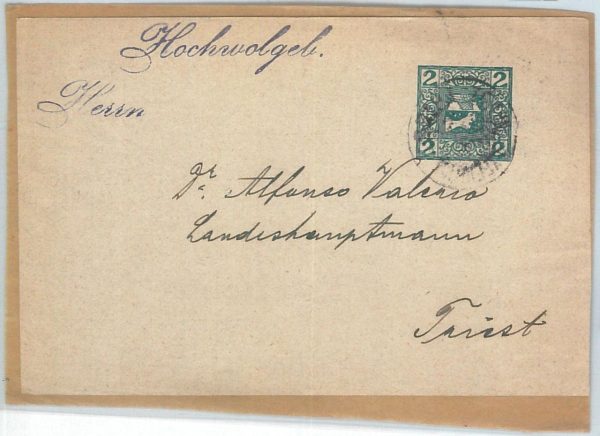 Hochwolgeb.
Herrn
2 2
2 2
Dr. Alfonso Valerio
Landeshauptmann
Triest